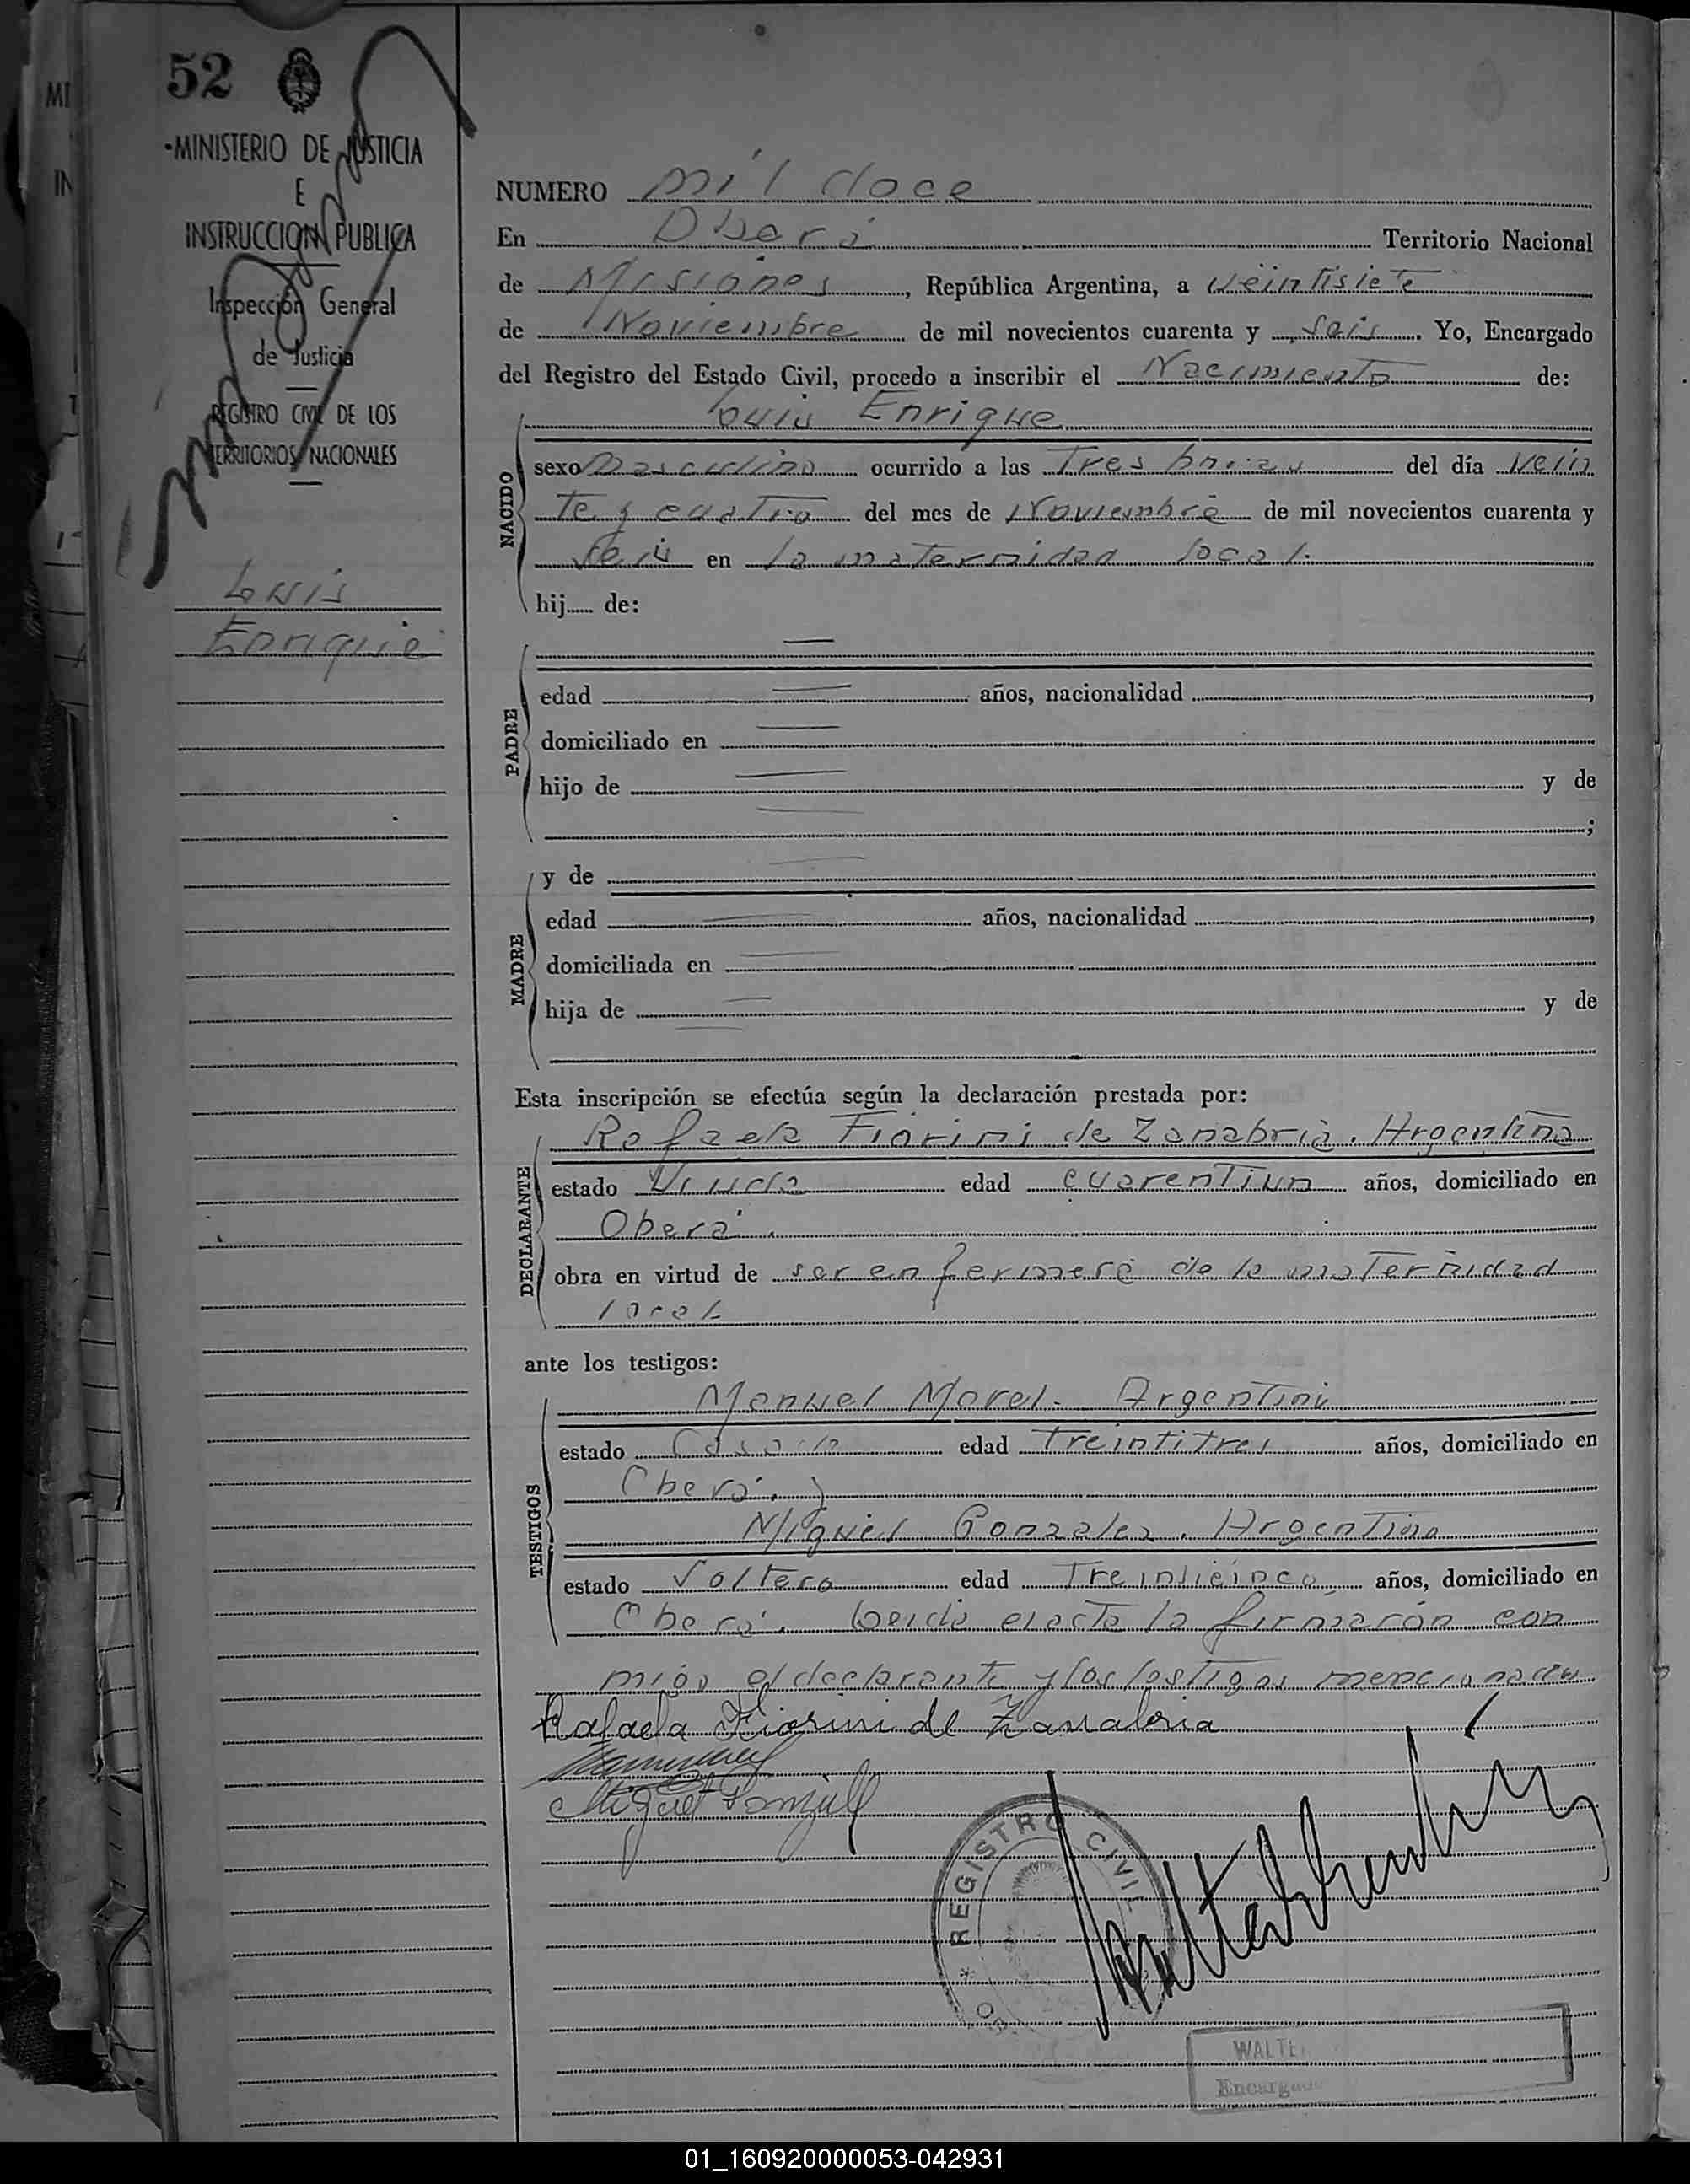 52
MINISTERIO DE JUSTICIA
E
INSTRUCCION PUBLICA
Inspección General
de Justicia
REGISTRO CIVIL DE LOS
TERRITORIOS NACIONALES
Luis
Enrique
NUMERO mil doce
En Oberá Territorio Nacional
de Misiones, República Argentina, a veintisiete
de Noviembre de mil novecientos cuarenta y seis. Yo, Encargado
del Registro del Estado Civil, procedo a inscribir el Nacimiento de:
Luis Enrique
NACIDO
sexo Masculino ocurrido a las Tres horas del día vein
te y cuatro del mes de Noviembre de mil novecientos cuarenta y
seis en la maternidad local.
hij de:
PADRE
edad años, nacionalidad ,
domiciliado en
hijo de y de
;
MADRE
y de
edad años, nacionalidad ,
domiciliada en
hija de y de
Esta inscripción se efectúa según la declaración prestada por:
DECLARANTE
Rafaela Fiorini de Zanabria. Argentina
estado Viuda edad cuarentiun años, domiciliado en
Oberá.
obra en virtud de ser enfermera de la maternidad
local
ante los testigos:
TESTIGOS
Manuel Morel. Argentino
estado Casado edad Treintitres años, domiciliado en
Oberá. y
Miguel Gonzalez. Argentino
estado Soltero edad Treinticinco años, domiciliado en
Oberá. Leida el acta la firmarón con
migo el declarante y los testigos mencionados
Rafaela Fiorini de Zanabria
Miguel Gonzalez
REGISTRO CIVIL
WALTE
Encargado
01_160920000053-042931